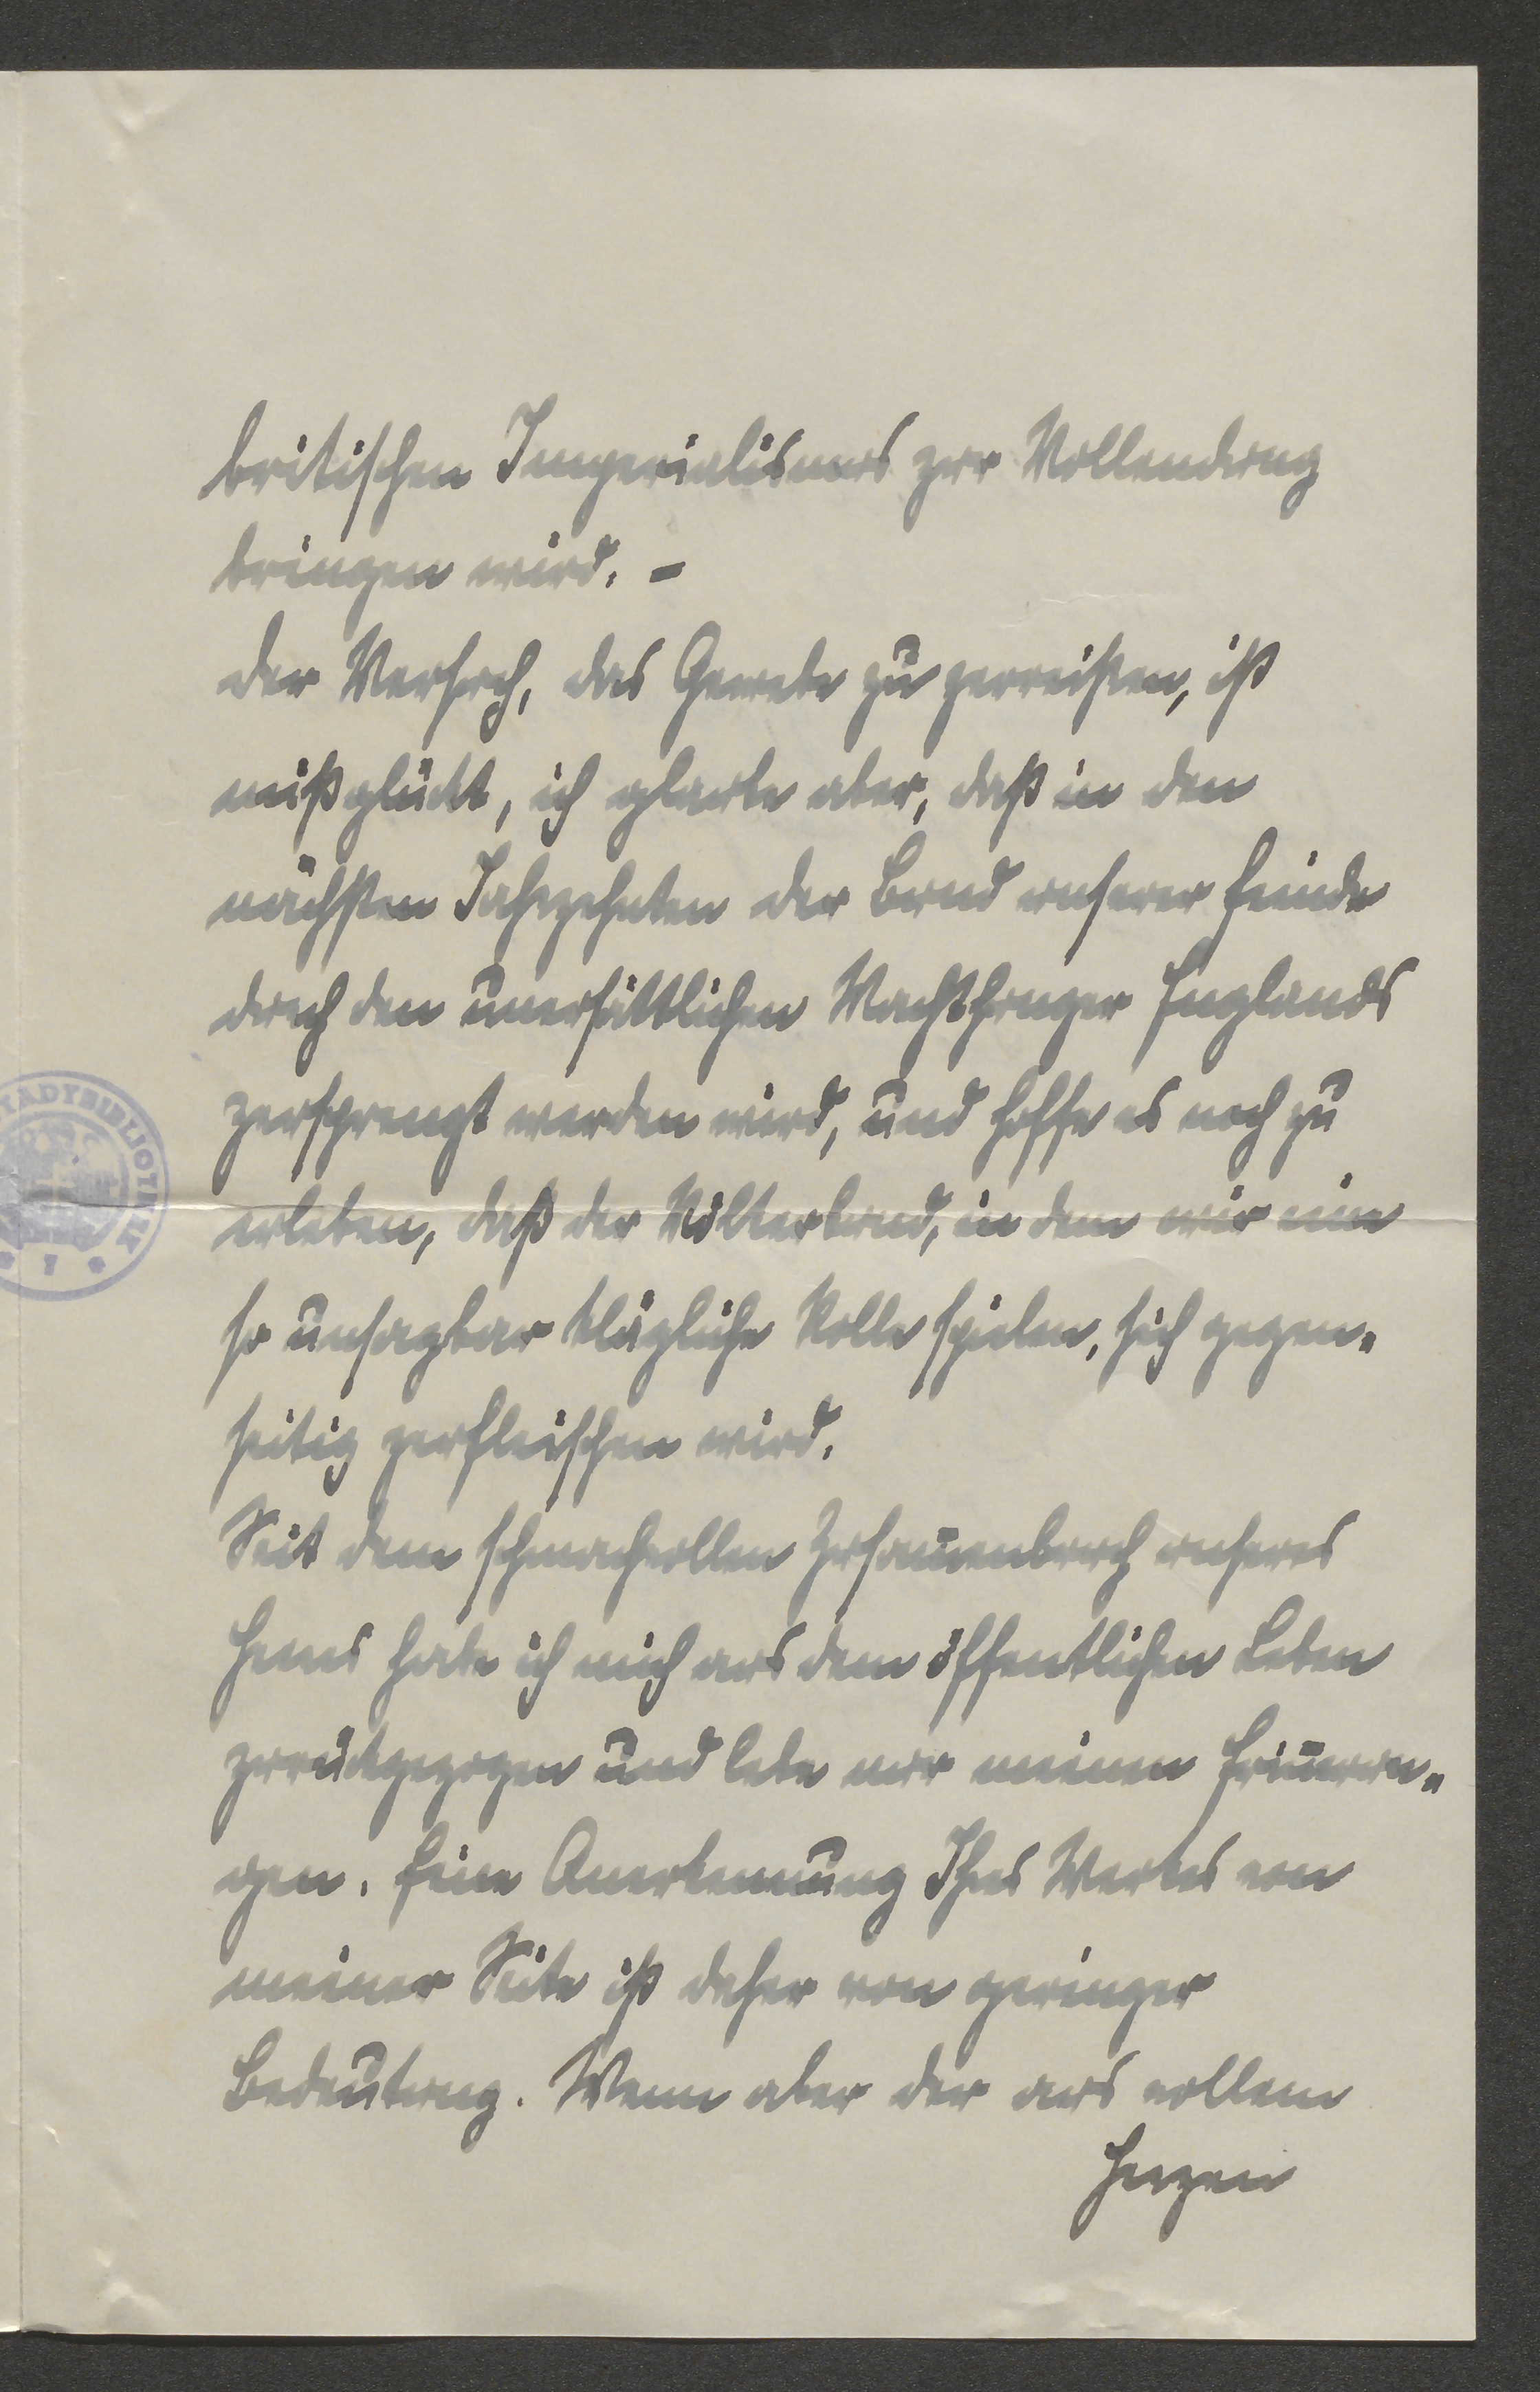 britischen Imperialismus zur Vollendung
bringen wird. -
Der Versuch, das Gewebe zu zerreißen, ist
mißglückt, ich glaube aber, daß in den
nächsten Jahrzehnten der Bund unserer Feinde
durch den unersättlichen Machthunger Englands
zersprengt werden wird, und hoffe es noch zu
erleben, daß der Völkerbund, in dem wir eine
so unsagbar klägliche Rolle spielen, sich gegen-
seitig zerfleischen wird.
Seit dem schmachvollen Zusam̅enbruch unseres
Heeres habe ich mich aus dem öffentlichen Leben
zurückgezogen und lebe nur meinen Erin̅erun-
gen. Eine Anerkennung Ihres Werkes von
meiner Seite ist daher von geringer
Bedeutung. Wenn aber der aus vollem
Herzen
STADTBIBLIOTHEK